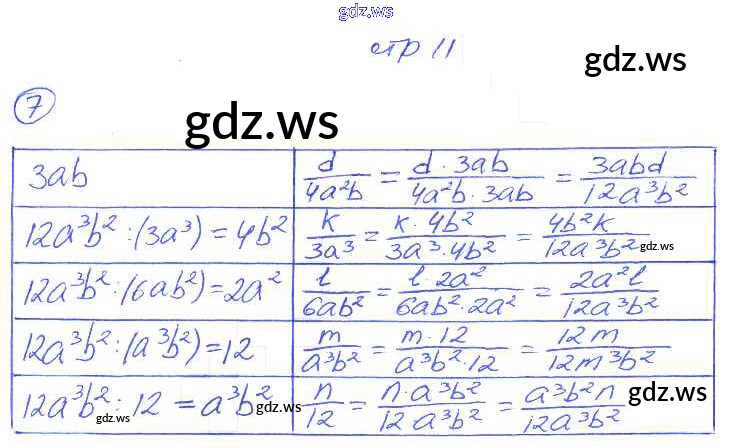 gdz.ws
стр 11
gdz.ws
7
gdz.ws
3ab | d/4a²b = d·3ab/4a²b·3ab = 3abd/12a³b²
12a³b² : (3a³) = 4b² | k/3a³ = k·4b²/3a³·4b² = 4b²k/12a³b² gdz.ws
12a³b² : (6ab²) = 2a² | l/6ab² = l·2a²/6ab²·2a² = 2a²l/12a³b²
12a³b² : (a³b²) = 12 | m/a³b² = m·12/a³b²·12 = 12m/12m³b²
12a³b² : 12 = a³b² | n/12 = n·a³b²/12a³b² = a³b²n/12a³b² gdz.ws
gdz.ws gdz.ws gdz.ws